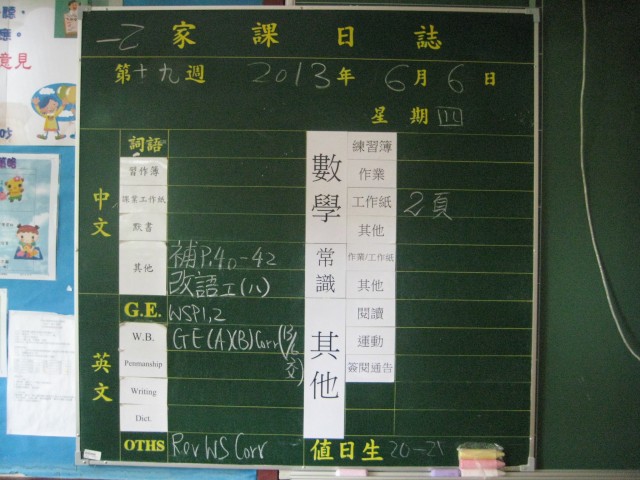 一乙 家課日誌
第十九週 2013年 6月 6日
星期四
中文
詞語
習作簿
課業工作紙
默書
其他 補P.40-42
改語工(八)
英文
G.E. WSP1,2
W.B. GE(A)(B)Corr(13/6交)
Penmanship
Writing
Dict.
OTHS Rev WS Corr
數學
練習簿
作業
工作紙 2頁
其他
常識
作業/工作紙
其他
其他
閱讀
運動
簽閱通告
值日生 20-21
意見